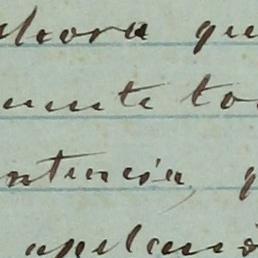 ahora qu
mente to
ntencia, q
apelació